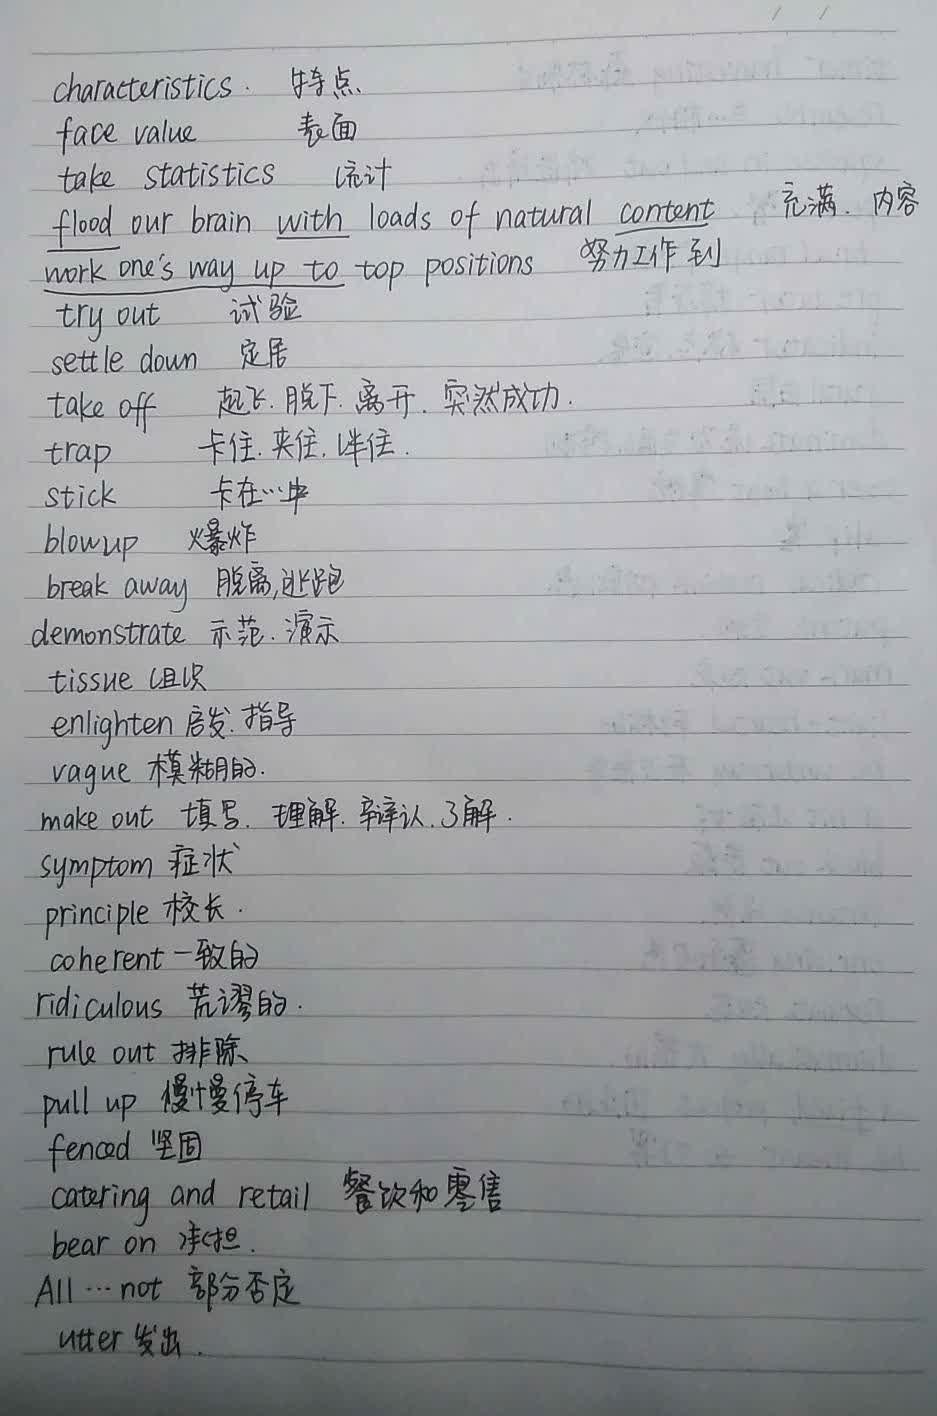 characteristics. 特点
face value 表面
take statistics 统计
flood our brain with loads of natural content 充满. 内容
work one's way up to top positions 努力工作到
try out 试验
settle down 定居
take off 起飞. 脱下. 离开. 突然成功.
trap 卡住. 夹住. 绊住.
stick 卡在…中
blow up 爆炸
break away 脱离, 逃跑
demonstrate 示范. 演示
tissue 组织
enlighten 启发. 指导
vague 模糊的.
make out 填写. 理解. 辩认. 了解.
symptom 症状
principle 校长.
coherent 一致的
ridiculous 荒谬的.
rule out 排除
pull up 慢慢停车
fenced 坚固
catering and retail 餐饮和零售
bear on 承担.
All … not 部分否定
utter 发出.